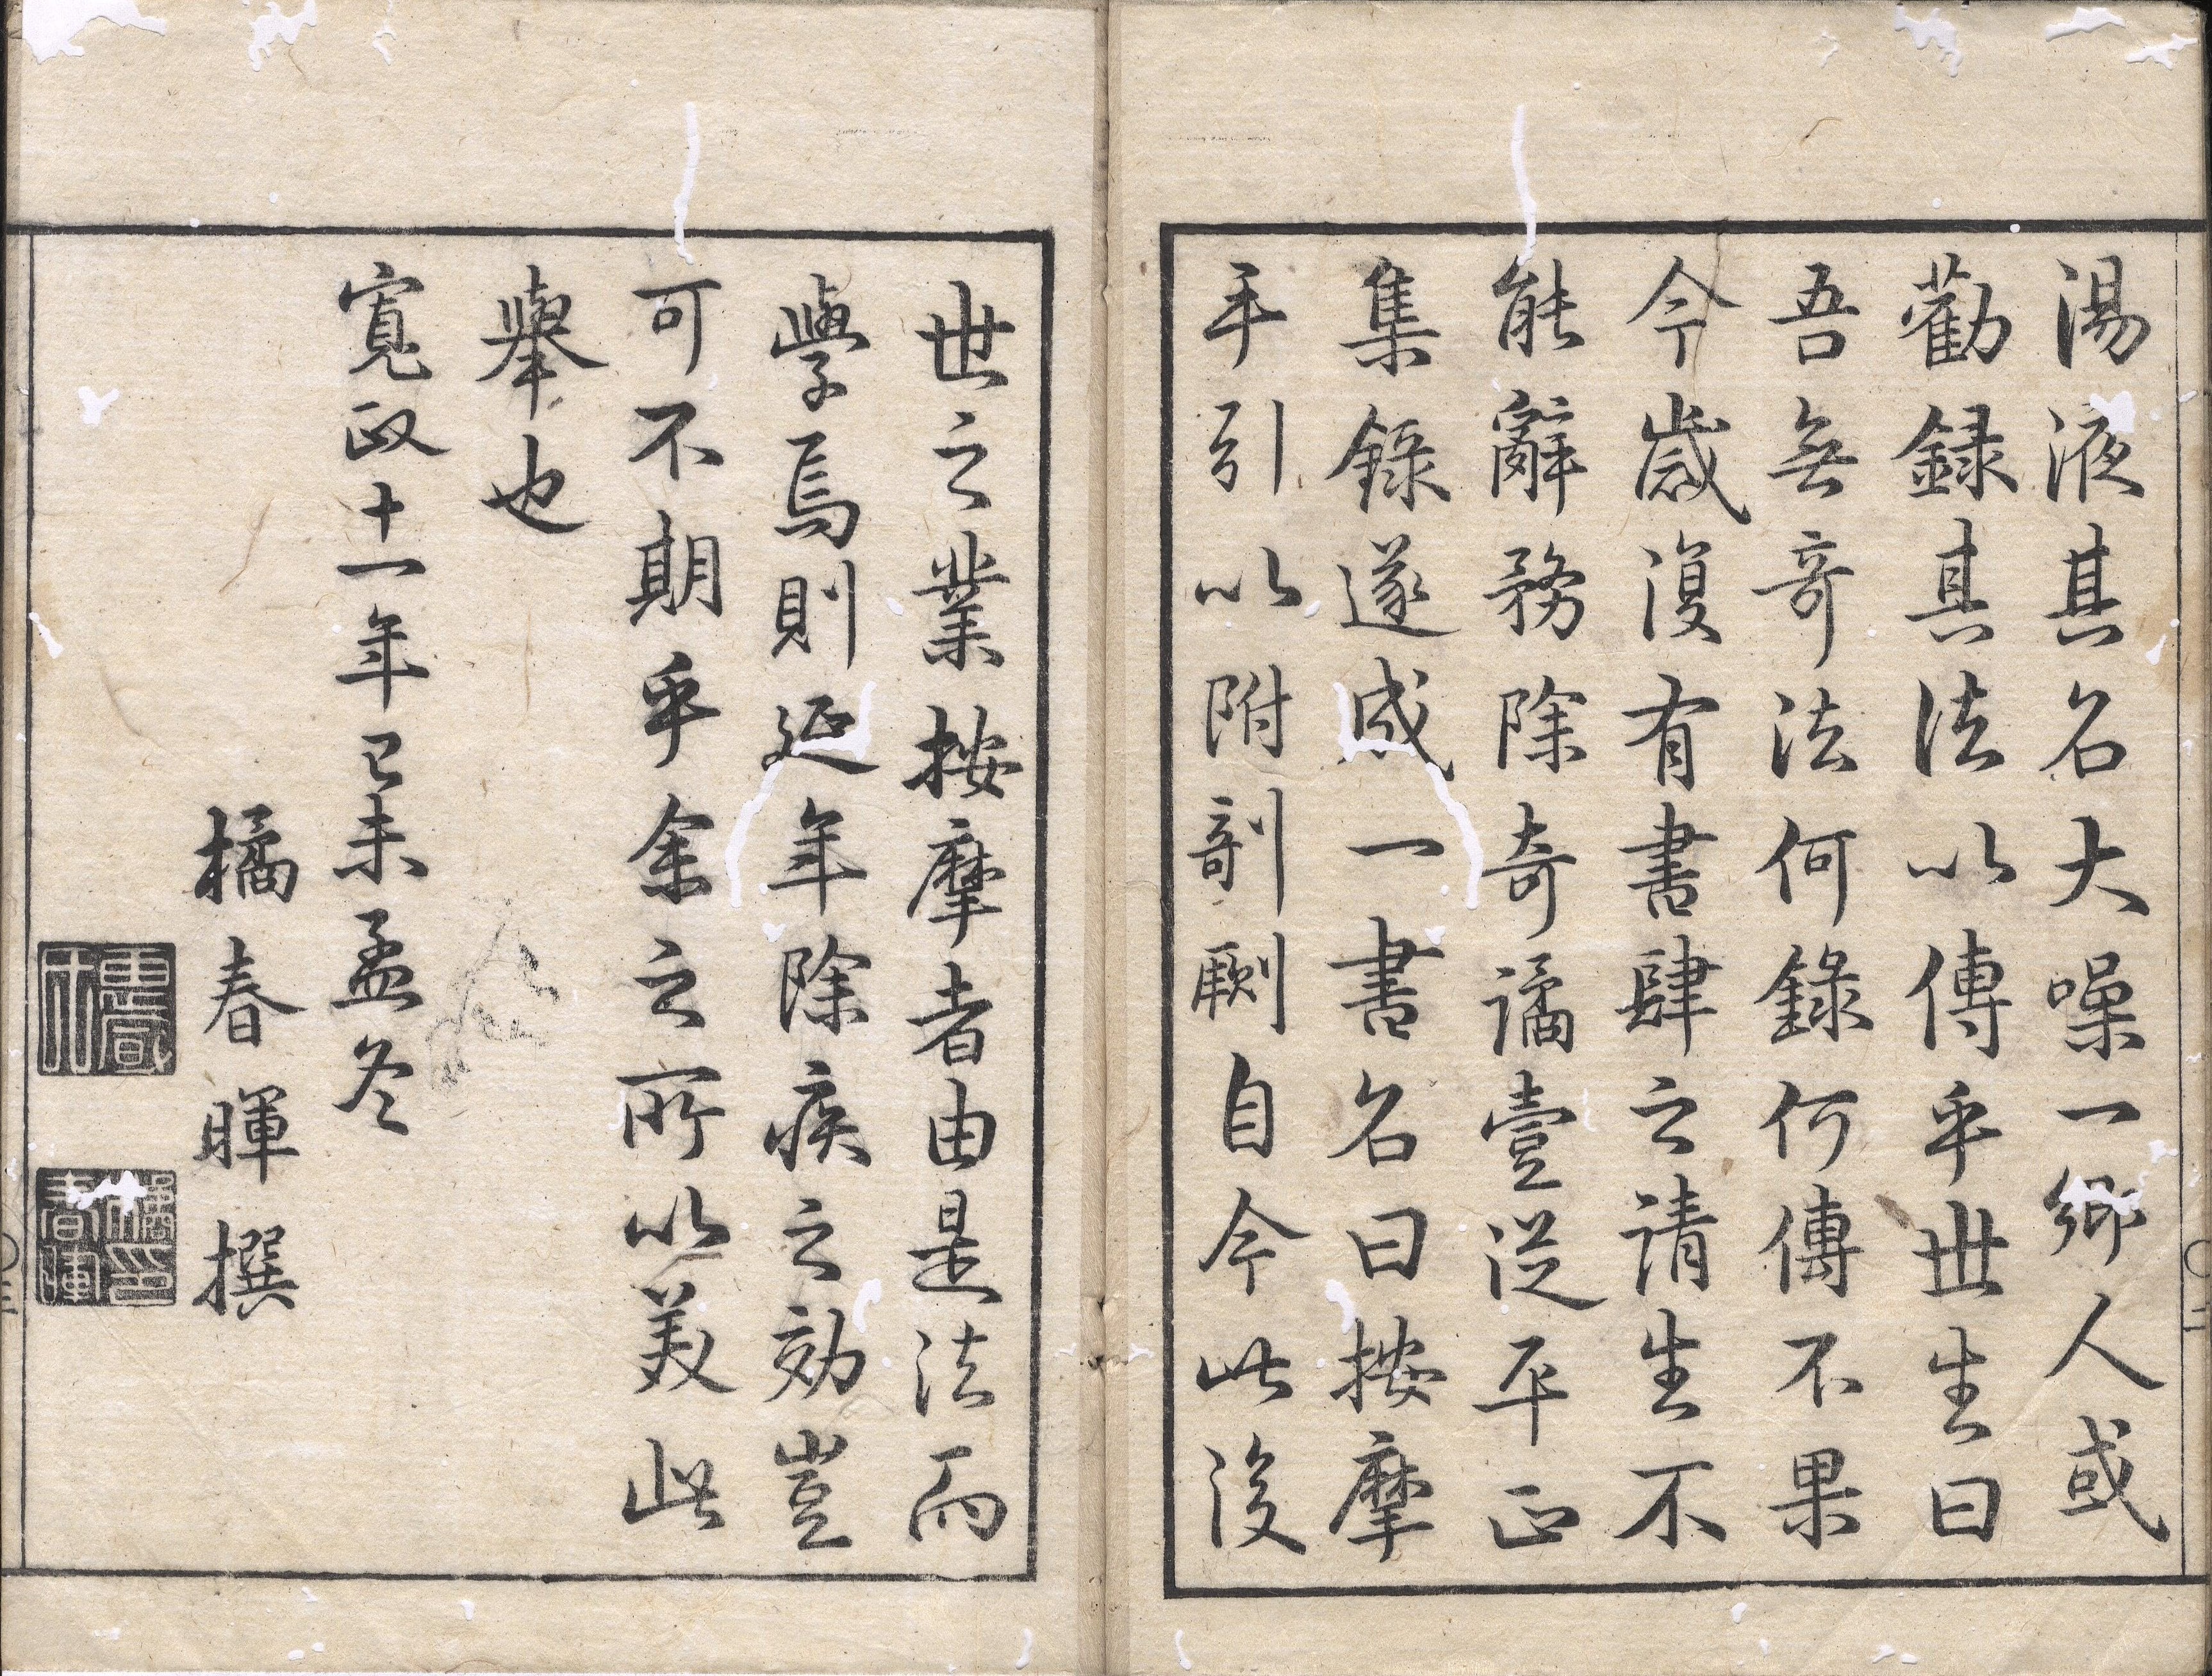 湯液其名大噪一郷人或
勸録其法以傳乎世生曰
吾無奇法何錄何傳不果
今歲復有書肆之請生不
能辭務除奇譎壹從平正
集錄遂成一書名曰按摩
手引以附剞劂自今此後
世之業按摩者由是法而
學焉則延年除疾之効豈
可不期乎余之所以美此
舉也
寬政十一年己未孟冬
橘春暉撰
橘印春暉
二
三